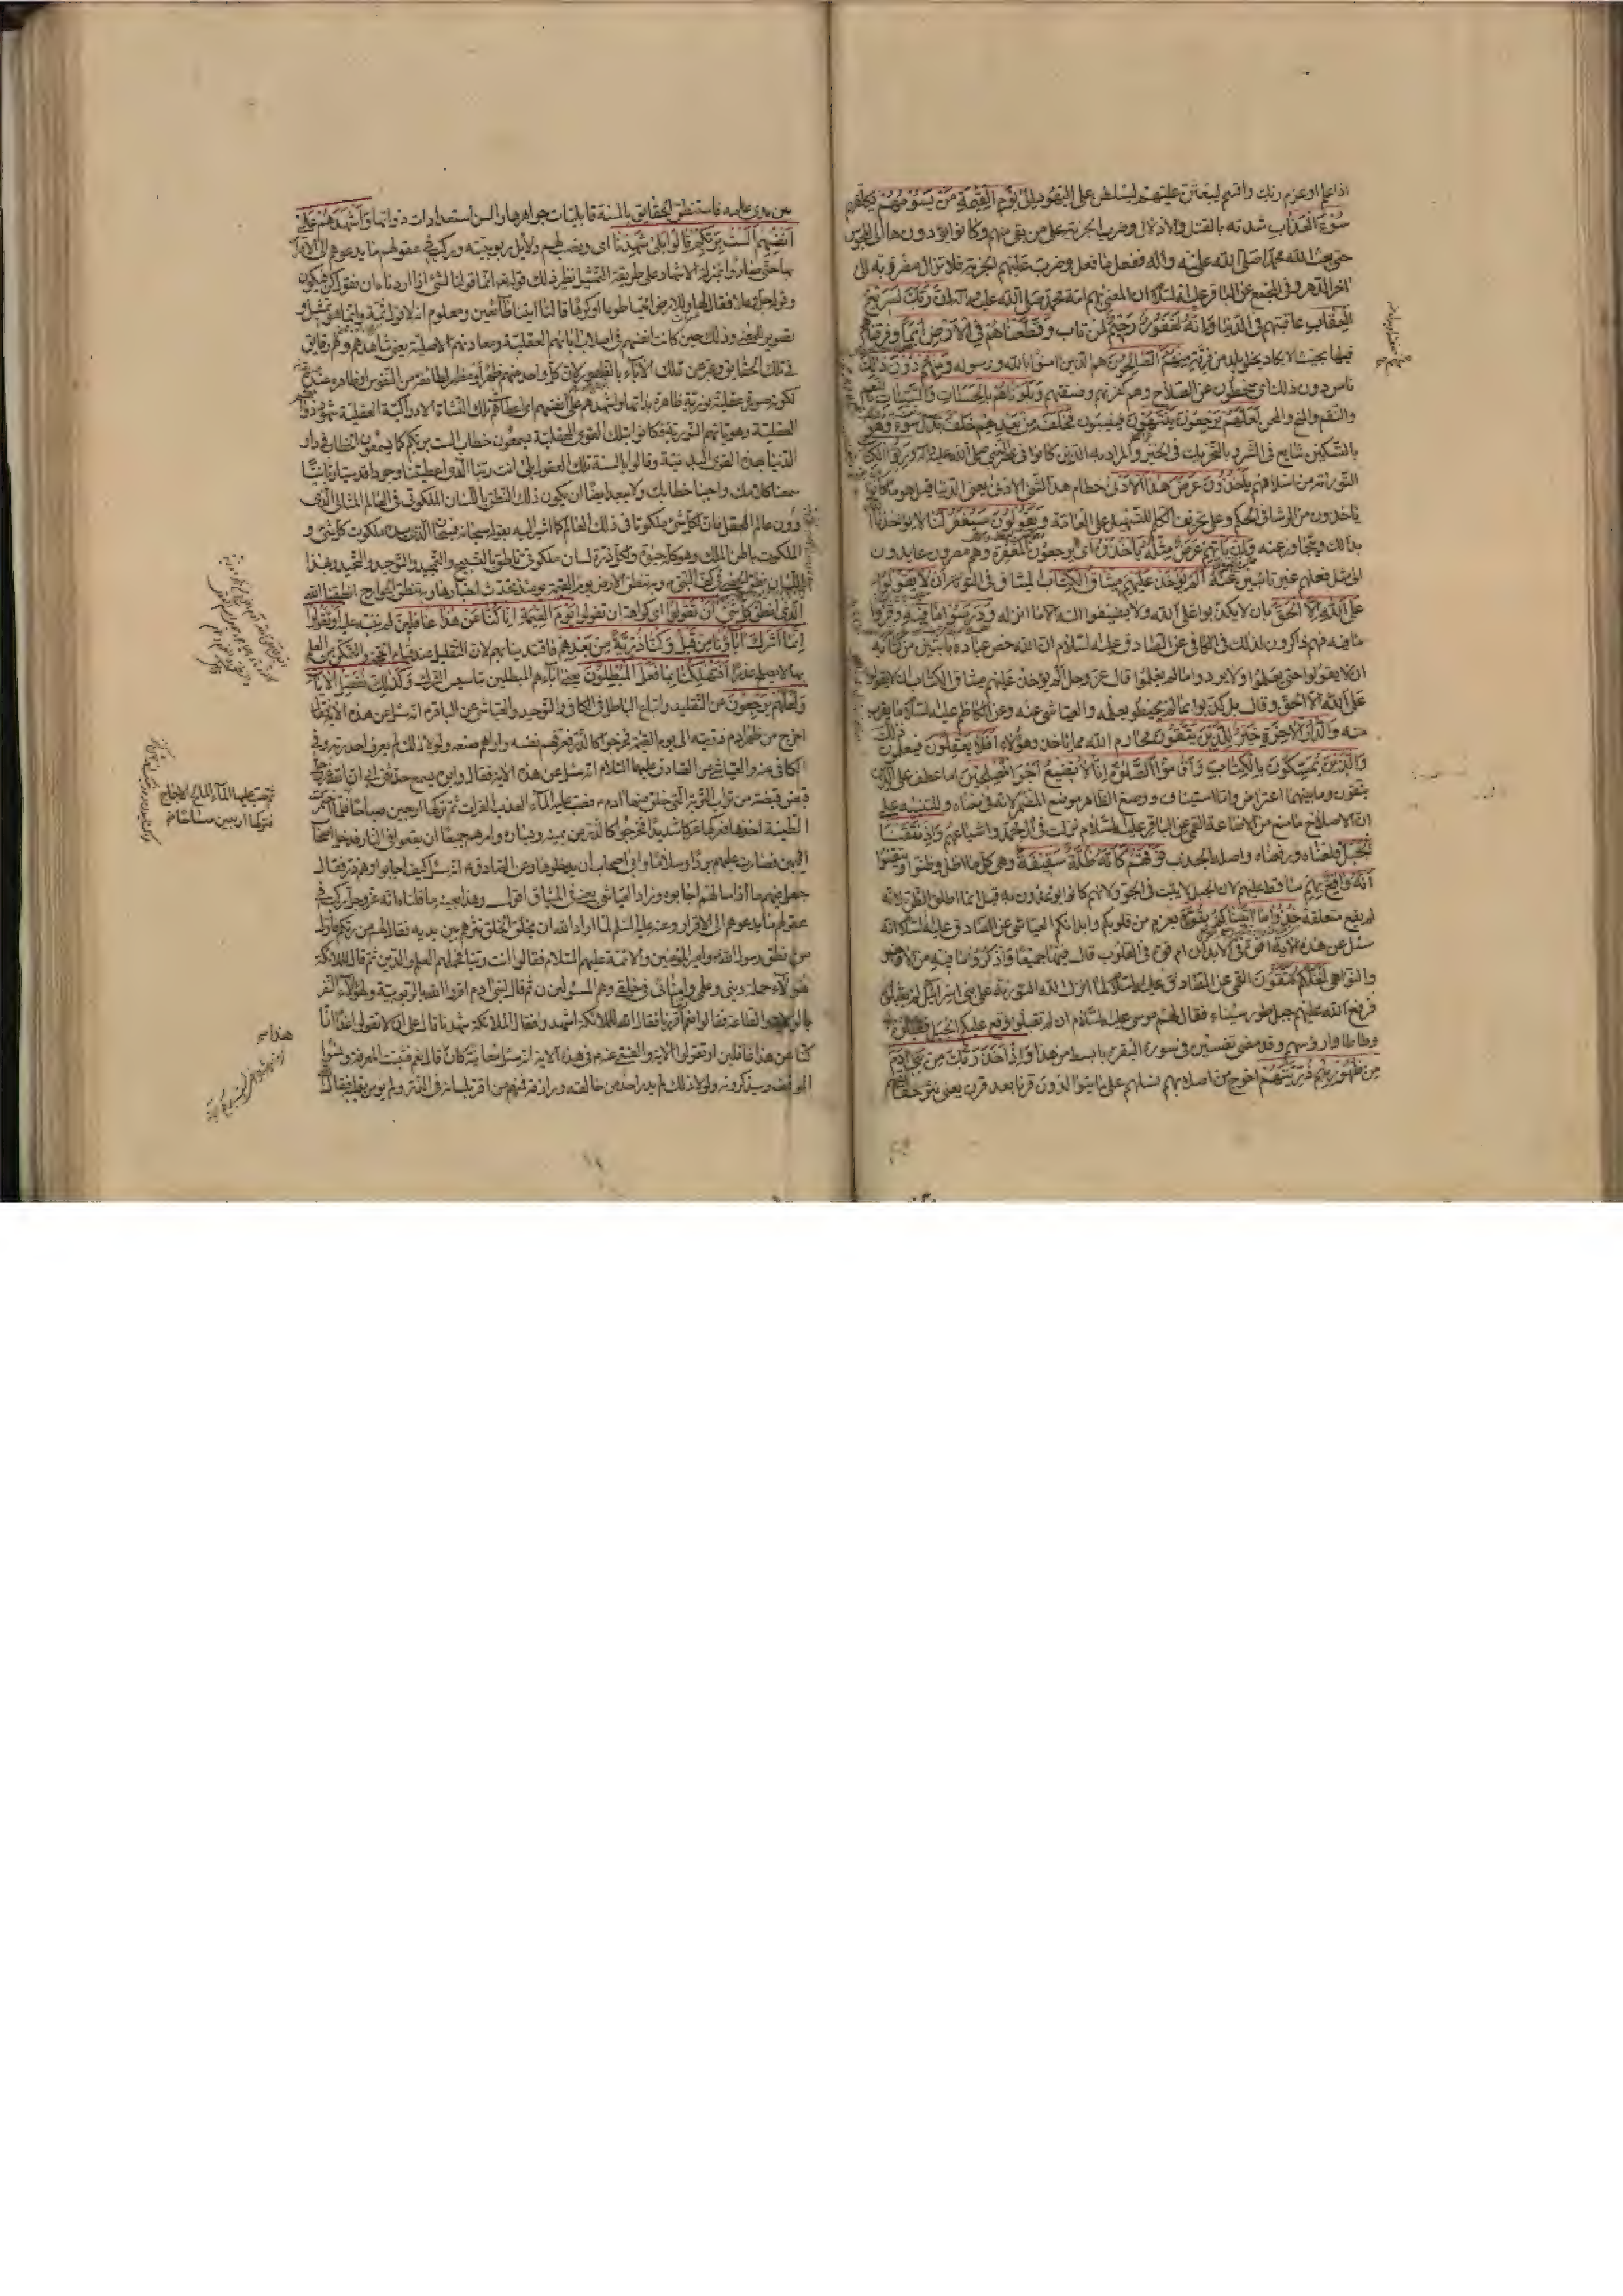 اذا علم او عزم ربك واقسم ليبعثن عليهم ليسلطن على اليهود إلى يوم القيمة من يسومهم يكلفهم
سوء العذاب شدته بالقتل والاذلال وضرب الجزية على من بقى منهم وكانوا يؤدونها الى المجوس
حتى بعث الله محمدا صلى الله عليه واله ففعل ما فعل وضرب عليهم الجزية فلا تزال مضروبة الى
اخر الدهر وفى المجمع عن الباقر عليه السلام ان المعنى بهم امة محمد صلى الله عليه واله ان ربك لسريع
العقاب عاقبتهم فى الدنيا وانه لغفور رحيم لمن تاب وقطعناهم فى الارض امما وفرقناهم
فيها بحيث لا يكاد يخلو بلد من فرقة منهم منهم الصالحون هم الذين امنوا بالله ورسوله ومنهم دون ذلك
ناس دون ذلك اى منحطون عن الصلاح وهم كفرتهم وفسقتهم وبلوناهم بالحسنات والسيئات بالنعم
والنقم والمنح والمحن لعلهم يرجعون ينتهون فينيبون فخلف من بعدهم خلف بدل سوء وهو
بالتسكين شايع فى الشر وبالتحريك فى الخير والمراد به الذين كانوا فى عصر النبى صلى الله عليه واله ورثوا الكتاب
التورية من اسلافهم يأخذون عرض هذا الادنى حطام هذا الشئ الادنى يعنى الدنيا قيل هو ما كانوا
ياخذون من الرشا فى الحكم وعلى تحريف الكلم للتسهيل على العامة ويقولون سيغفر لنا لا يؤاخذنا
بذلك ويتجاوز عنه وان يأتهم عرض مثله يأخذوه اى يرجعون المغفرة وهم مصرون عايدون
الى مثل فعلهم غير تائبين عنه ألم يؤخذ عليهم ميثاق الكتاب الميثاق فى التورية أن لا يقولوا
على الله الا الحق بان لا يكذبوا على الله ولا يضيفوا اليه الا ما انزله ودرسوا ما فيه وقرؤا
ما فيه فهم ذاكرون لذلك فى الكافى عن الصادق عليه السلام ان الله خص عباده بايتين من كتابه
ان لا يقولوا حتى يعلموا ولا يردوا ما لم يعلموا قال عز وجل ألم يؤخذ عليهم ميثاق الكتاب ان لا يقولوا
على الله الا الحق وقال بل كذبوا بما لم يحيطوا بعلمه والعياشى عنه وعن الكاظم عليه السلام ما يقرب
منه والدار الاخرة خير للذين يتقون محارم الله مما ياخذ هؤلاء افلا يعقلون فيعلمون ذلك
والذين يمسكون بالكتاب واقاموا الصلوة انا لا نضيع اجر المصلحين اما عطف على الذين
يتقون وما بينهما اعتراض واما استيناف ووضع الظاهر موضع المضمر لانه فى معناه وللتنبيه على
ان الاصلاح مانع من الاضاعة القمى عن الباقر عليه السلام نزلت فى ال محمد واشياعهم واذ نتقنا
الجبل قلعناه ورفعناه واصله الجذب فوقهم كأنه ظلة سقيفة وهى كل ما اظل وظنوا وتيقنوا
أنه واقع بهم ساقط عليهم لان الجبل لا يثبت فى الجو ولانهم كانوا يوعدون به قيل انما اطلق الظن لانه
لم يقع متعلقه خذوا ما اتيناكم بقوة بعزم من قلوبكم وابدانكم العياشى عن الصادق عليه السلام انه
سئل عن هذه الاية اقوة فى الابدان ام قوة فى القلوب قال فيهما جميعا واذكروا ما فيه من الاوامر
والنواهى لعلكم تتقون القمى عن الصادق عليه السلام لما انزل الله التورية على بنى اسرائيل لم يقبلوه
فرفع الله عليهم جبل طور سيناء فقال لهم موسى عليه السلام ان لم تقبلوا وقع عليكم الجبل فقبلوه
وطاطاوا رؤسهم وقد مضى تفسيره فى سورة البقرة بابسط من هذا واذ اخذ ربك من بنى ادم
من ظهورهم ذريتهم اخرج من اصلابهم نسلهم على ما يتوالدون قرنا بعد قرن يعنى نثر حقائقهم
بين يدى علمه فاستنطق الحقايق بالسنة قابليات جواهرها والسن استعدادات ذواتها واشهدهم على
انفسهم الست بربكم قالوا بلى شهدنا اى ونصب لهم دلايل ربوبيته وركب فى عقولهم ما يدعوهم الى الاقرار
بها حتى صاروا بمنزلة الاشهاد على طريقة التمثيل نظير ذلك قوله انما قولنا لشئ اذا اردناه ان نقول له كن فيكون
وقوله جل وعلا فقال لها وللارض ائتيا طوعا او كرها قالتا اتينا طائعين ومعلوم انه لا قول ثمة وانما هو تمثيل و
تصوير للمعنى وذلك حين كانت انفسهم فى اصلاب ابائهم العقلية ومعادنهم الاصلية يعنى شاهدهم وهم رقايق
فى تلك الحقايق وعبر عن تلك الاباء بالظهور لان كل واحد منهم ظهر او مظهر لطائفة من النفوس او ظاهر عنده
لكونه صورة عقلية نورية ظاهرة بذاتها واشهدهم على انفسهم اى اعطاهم فى تلك النشاة الادراكية العقلية شهود ذواتهم
العقلية وهوياتهم النورية فكانوا بتلك القوى العقلية يسمعون خطاب الست بربكم كما يسمعون الخطاب فى دار
الدنيا بهذه القوى البدنية وقالوا بالسنة تلك العقول بلى انت ربنا الذى اعطيتنا وجودا قدسيا ربانيا
سمعنا كلامك واجبنا خطابك ولا يبعد ايضا ان يكون ذلك النطق باللسان الملكوتى فى العالم المثالى الذى
دون عالم العقل فان لكل شئ ملكوتا فى ذلك العالم كما اشير اليه بقوله سبحانه فسبحان الذى بيده ملكوت كل شئ و
الملكوت باطن الملك وهو كله حيوة ولكل ذرة لسان ملكوتى ناطق بالتسبيح والتمجيد والتوحيد والتحميد وبهذا
اللسان نطق الحصى فى كف النبى وبه تنطق الارض يوم القيمة يومئذ تحدث اخبارها وبه تنطق الجوارح انطقنا الله
الذى انطق كل شئ أن تقولوا اى كراهة ان تقولوا يوم القيمة انا كنا عن هذا غافلين لم ننبه عليه او تقولوا
انما اشرك اباؤنا من قبل وكنا ذرية من بعدهم فاقتدينا بهم لان التقليد عند قيام الحجة والتمكن من العلم
بها لا يصلح عذرا أفتهلكنا بما فعل المبطلون يعنى اباءهم المبطلين بتاسيس الشرك وكذلك نفصل الايات
ولعلهم يرجعون عن التقليد واتباع الباطل فى الكافى والتوحيد والعياشى عن الباقر انه سئل عن هذه الاية فقال
اخرج من ظهر ادم ذريته الى يوم القيمة فخرجوا كالذر فعرفهم نفسه واراهم صنعه ولولا ذلك لم يعرف احد ربه وفى
الكافى عنه والعياشى عن الصادق عليهما السلام انه سئل عن هذه الاية فقال وابوه يسمع حدثنى ابى ان الله عز وجل
قبض قبضة من تراب التربة التى خلق منها ادم فصب عليها الماء العذب الفرات ثم تركها اربعين صباحا فلما اختمرت
الطينة اخذها فعركها عركا شديدا فخرجوا كالذر من يمينه وشماله وامرهم جميعا ان يقعوا فى النار فدخل اصحاب
اليمين فصارت عليهم بردا وسلاما وابى اصحاب الشمال ان يدخلوها وعن الصادق انه سئل كيف اجابوا وهم ذر فقال
جعل فيهم ما اذا سالهم اجابوه وزاد العياشى يعنى فى الميثاق اقول وهذا بعينه ما قلناه انه عز وجل ركب فى
عقولهم ما يدعوهم الى الاقرار وعنه عليه السلام لما اراد الله ان يخلق الخلق نثرهم بين يديه فقال لهم من ربكم فاول
من نطق رسول الله وامير المؤمنين والائمة عليهم السلام فقالوا انت ربنا فحملهم العلم والدين ثم قال للملائكة
هؤلاء حملة دينى وعلمى وامنائى فى خلقى وهم المسئولون ثم قال لبنى ادم اقروا لله بالربوبية ولهؤلاء النفر
بالولاية والطاعة فقالوا نعم ربنا اقررنا فقال الله للملائكة اشهدوا فقال الملائكة شهدنا قال على ان لا تقولوا غدا انا
كنا عن هذا غافلين او تقولوا الاية والقمى عنه فى هذه الاية انه سئل معاينة كان هذا قال نعم فثبتت المعرفة ونسوا
الموقف وسيذكرونه ولولا ذلك لم يدر احد من خالقه ورازقه فمنهم من اقر بلسانه فى الذر ولم يؤمن بقلبه فقال
ثم صب عليها الماء المالح الاجاج
فتركها اربعين صباحا
هذا